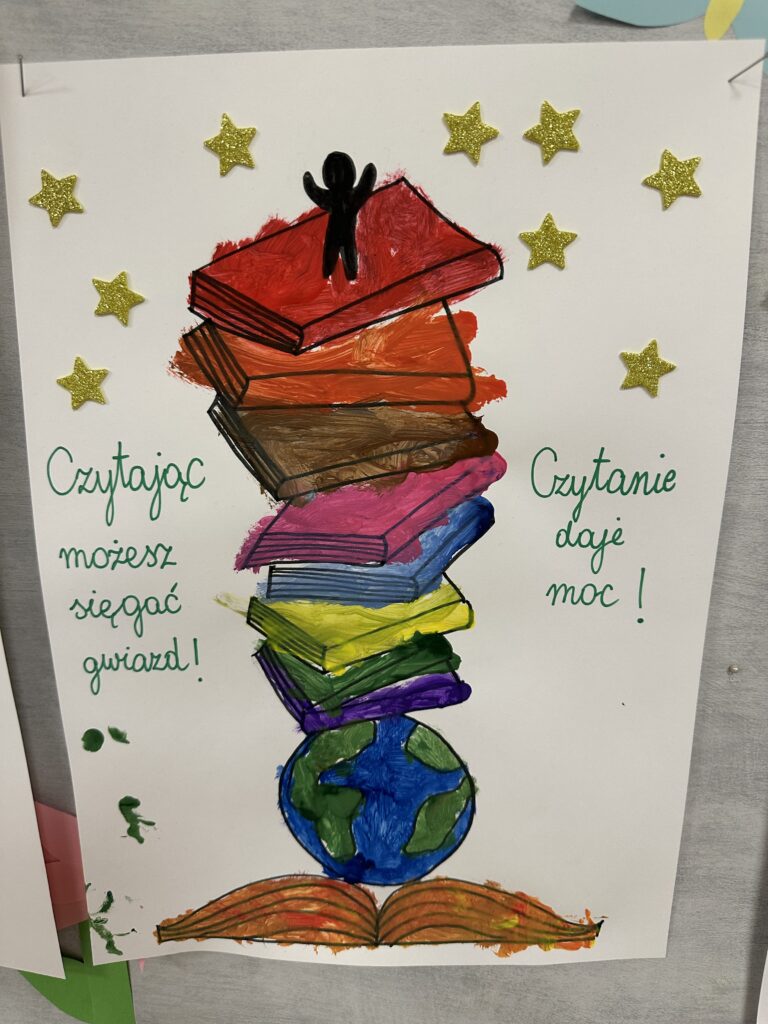 Czytając
możesz
sięgać
gwiazd!
Czytanie
daje
moc!